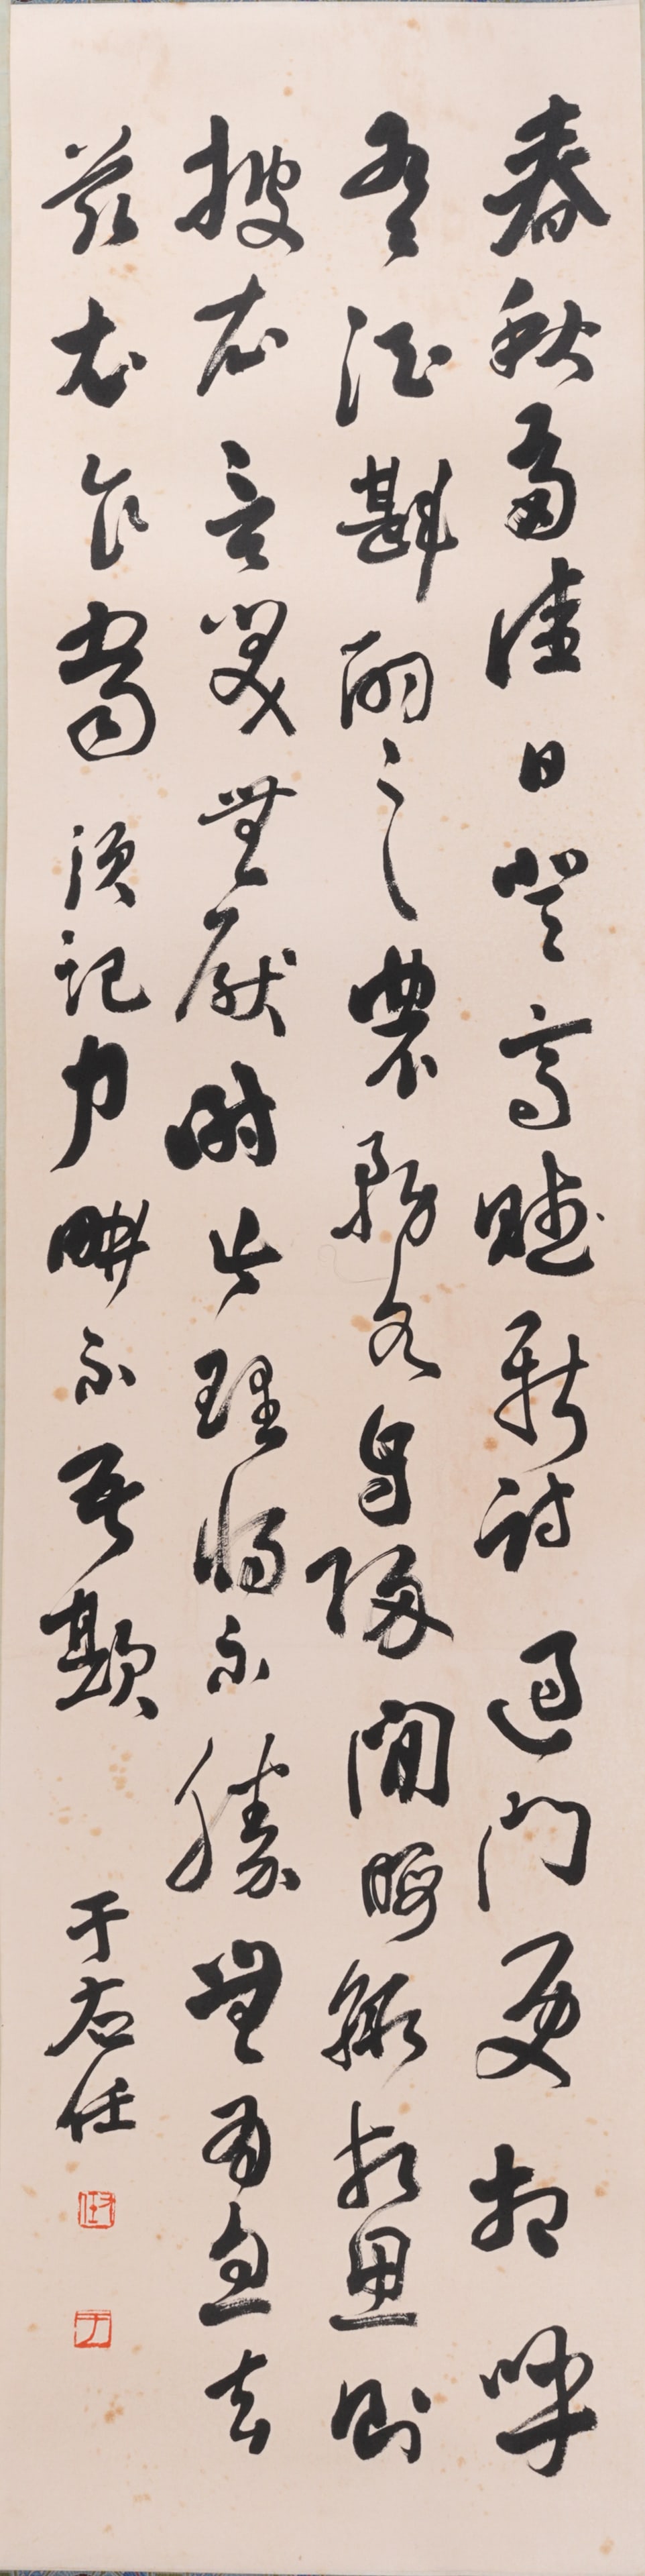 春秋多佳日登高賦新詩過門更相呼
有酒斟酌之農務各自歸閒暇輒相思則
披衣言笑無厭時此理將不勝無為忽去
茲衣食當須記力耕不吾欺
于右任